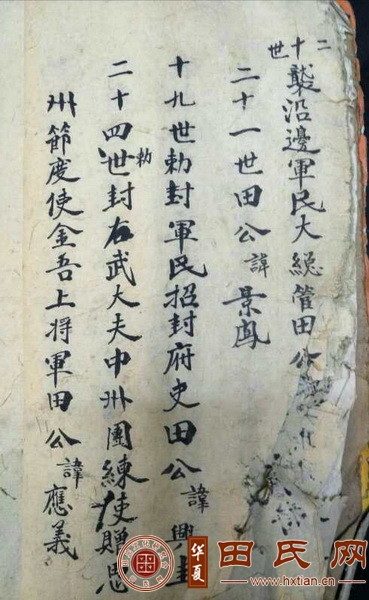 二十世襲沿邊軍民大總管田公
二十一世田公諱景鳳
十九世勅封軍民招封府史田公諱興
二十四世勅封右武大夫中州團練使贈忠
州節度使金吾上将軍田公諱應義
华夏
田氏网
www.hxtian.cn